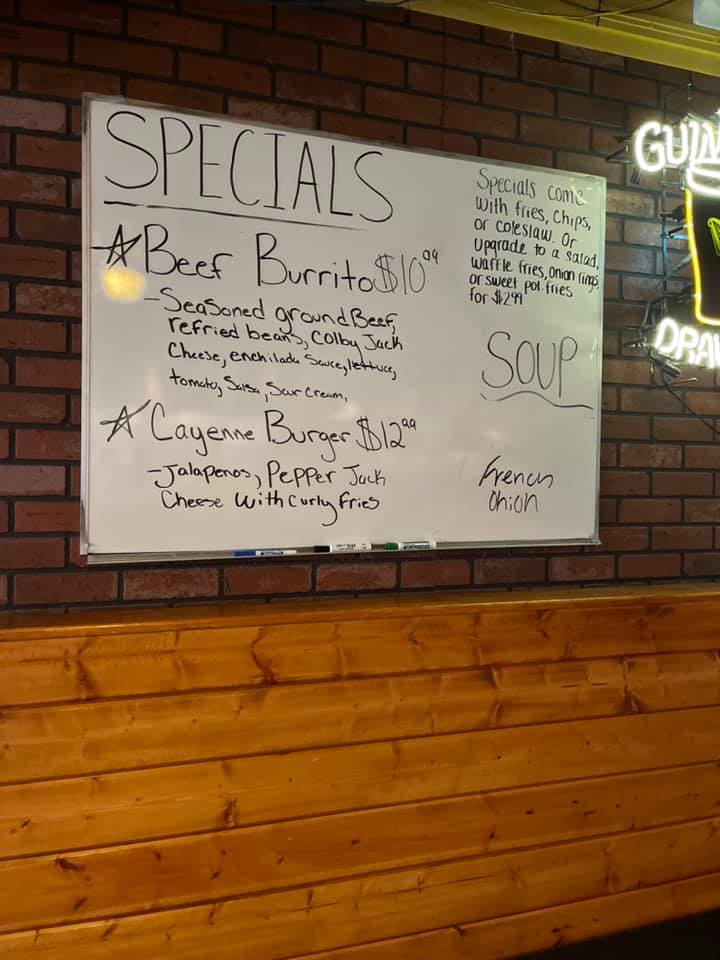 SPECIALS
☆ Beef Burrito $10.99
- Seasoned ground Beef,
refried beans, Colby Jack
Cheese, enchilada Sauce, lettuce,
tomato, Salsa, Sour Cream,
☆ Cayenne Burger $12.99
- Jalapenos, Pepper Jack
Cheese with Curly fries
Specials come
with fries, chips,
or coleslaw. Or
upgrade to a salad,
waffle fries, onion rings
or sweet pot. fries
for $2.99
SOUP
French
Onion
GUIN
DRA